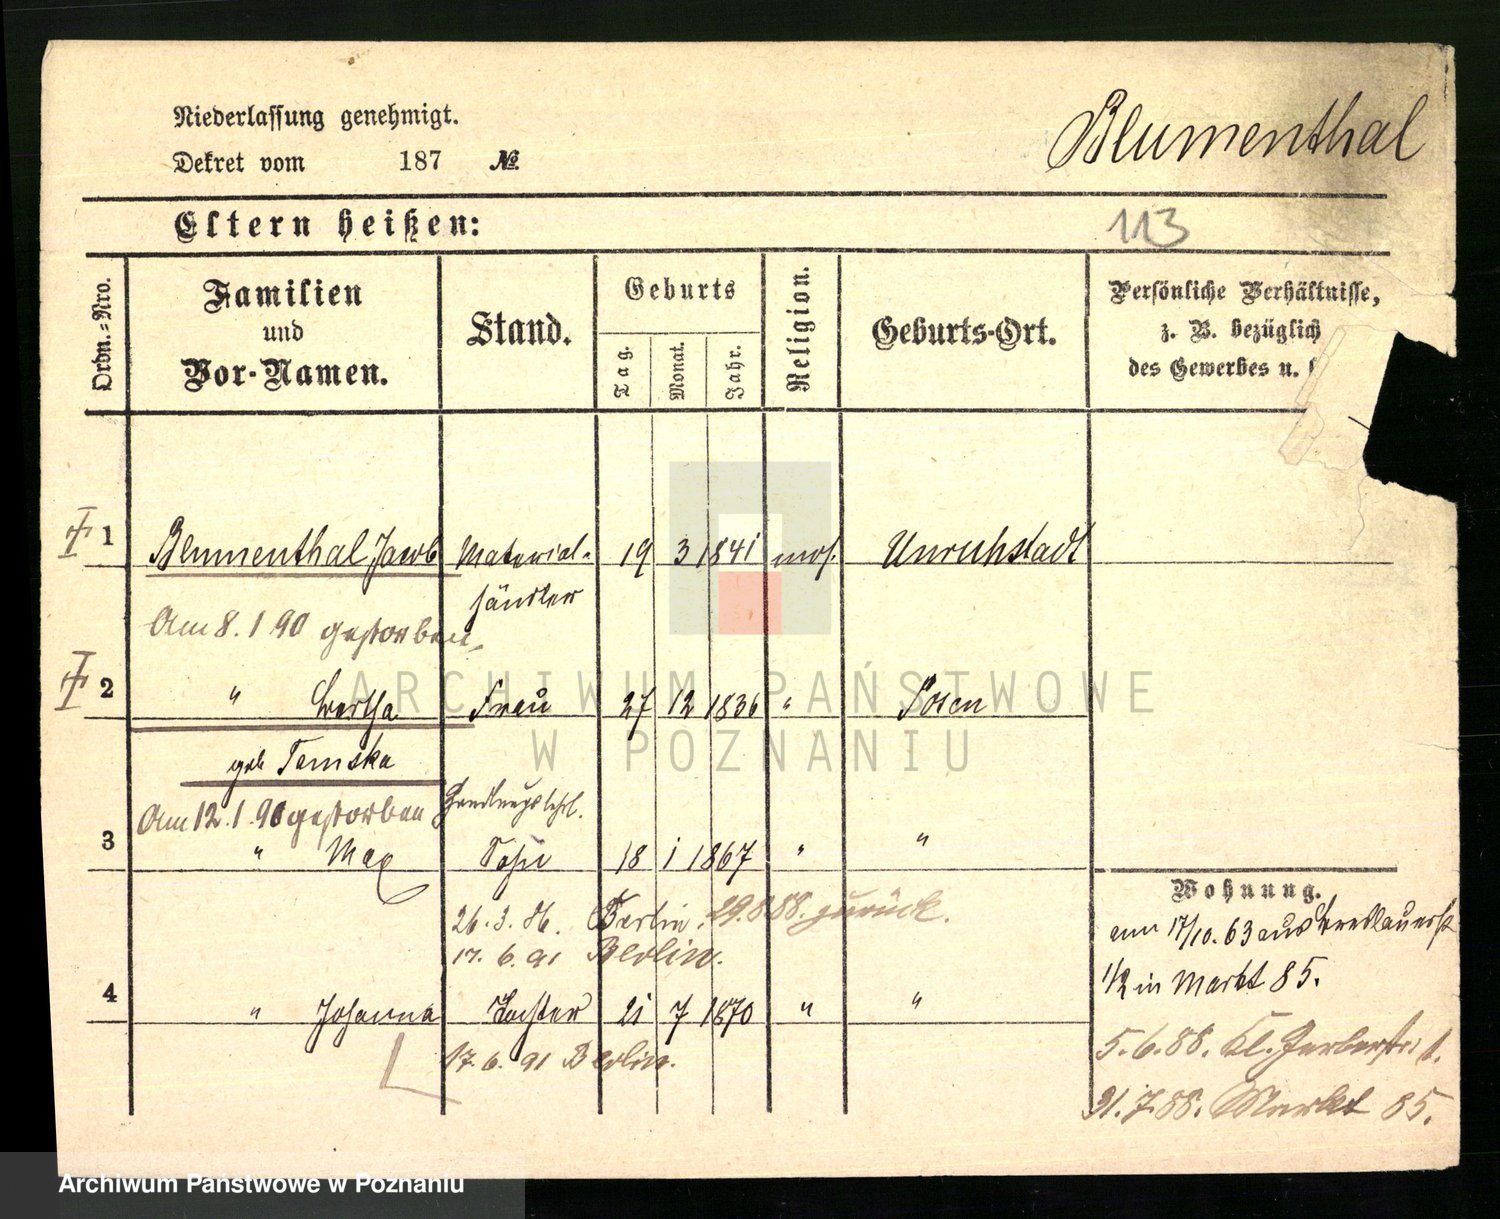 Niederlassung genehmigt.
Dekret vom 187 №
Blumenthal
Eltern heißen:
113
Ordn.-Nro.
Familien
und
Vor-Namen.
Stand.
Geburts
Tag.
Monat.
Jahr.
Religion.
Geburts-Ort.
Persönliche Verhältnisse,
z. B. bezüglich
des Gewerbes u.
1 Blumenthal Jacob Material- 19 3 1841 mos. Unruhstadt
händler
Am 8. 1 90 gestorben
2 " Bertha Frau 27 12 1836 " Posen
geb Temska
Am 12. 1. 90 gestorben Handlungslehrl.
3 " Max Sohn 18 1 1867 " "
26. 3. 86. Berlin. 29.8 88. zurück.
17. 6. 91 Berlin.
4 " Johanna Tochter 21 7 1870 " "
17. 6. 91 Berlin.
Wohnung.
am 17/10. 63 aus Breslauerst
1/2 in Markt 85.
5. 6. 88. Kl. Gerberstr.
31. 7. 88. Markt 85.
ARCHIWUM PAŃSTWOWE
W POZNANIU
Archiwum Państwowe w Poznaniu